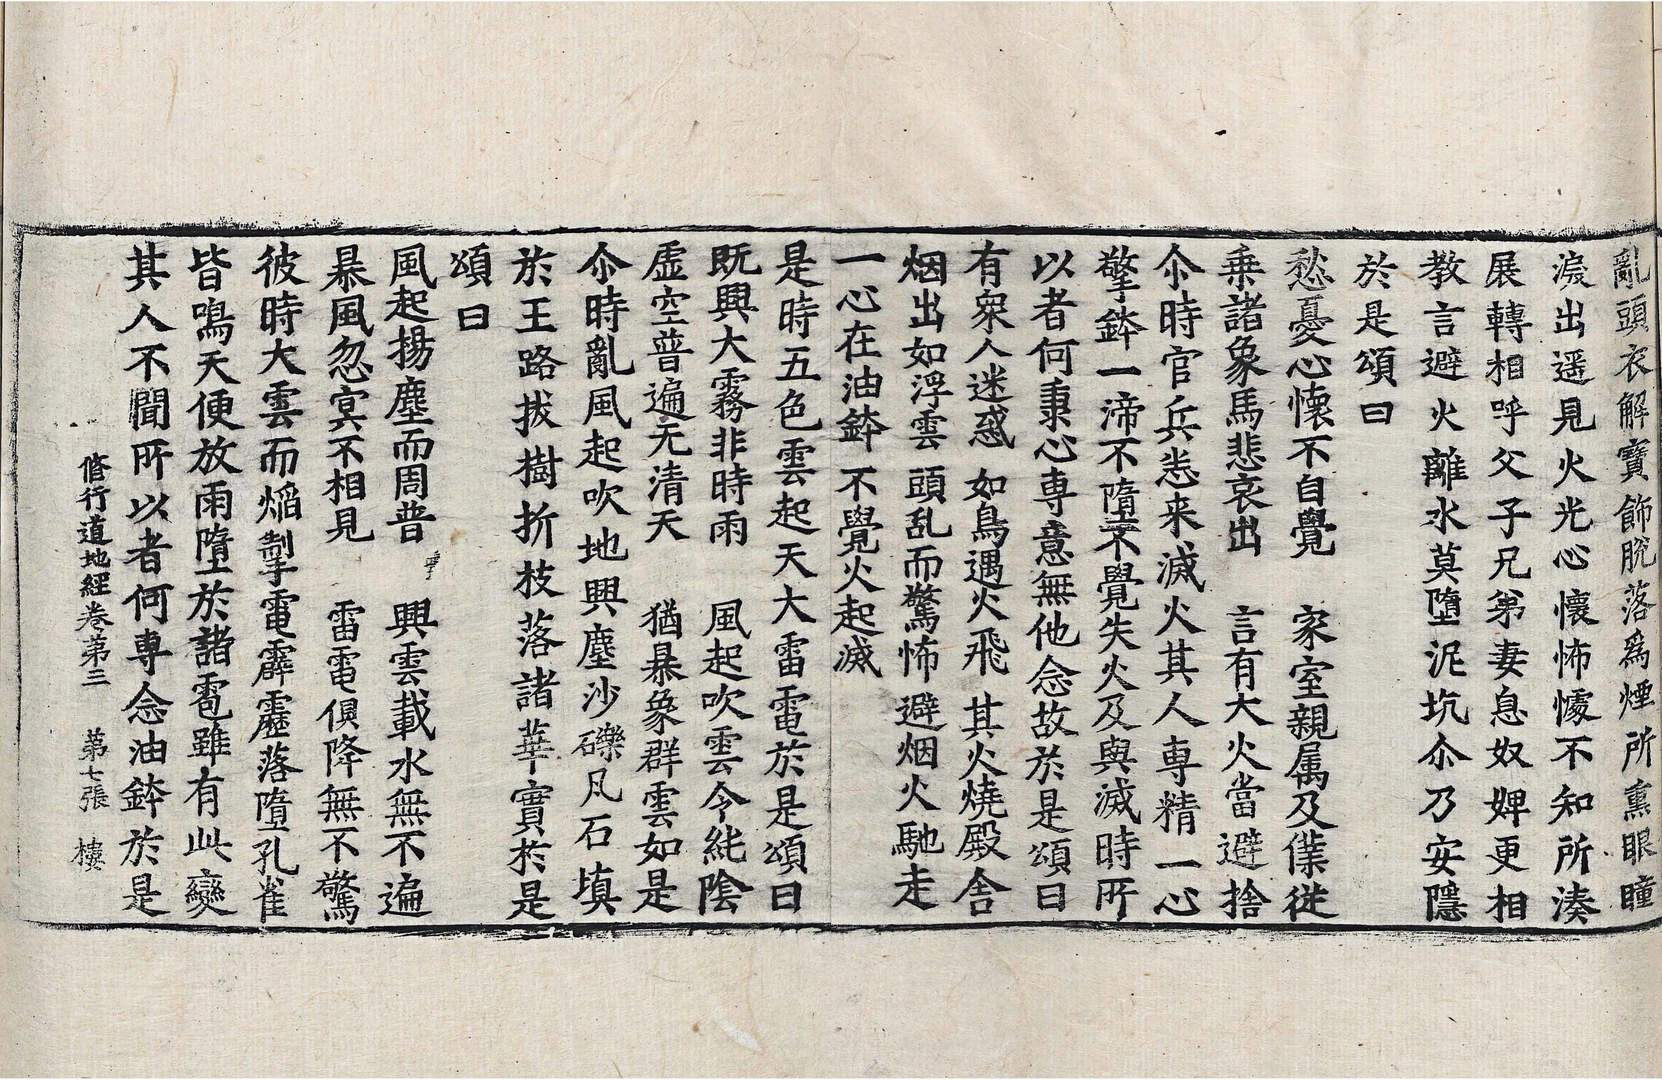 亂頭衣解寶飾脫落爲煙所熏眼瞳
淚出遥見火光心懷怖懅不知所湊
展轉相呼父子兄弟妻息奴婢更相
教言避火離水莫墮泥坑尒乃安隱
於是頌曰
愁憂心懷不自覺　家室親属及僕従
乗諸象馬悲哀出　言有大火當避捨
尒時官兵悉来滅火其人專精一心
擎鉢一渧不墮不覺失火及與滅時所
以者何秉心專意無他念故於是頌曰
有衆人迷惑　如鳥遇火飛　其火燒殿舎
烟出如浮雲　頭乱而驚怖　避烟火馳走
一心在油鉢　不覺火起滅
是時五色雲起天大雷電於是頌曰
既興大霧非時雨　風起吹雲令純陰
虛空普遍无清天　猶暴象群雲如是
尒時亂風起吹地興塵沙礫凡石填
於王路拔樹折枝落諸華實於是
頌曰
風起揚塵而周普　興雲載水無不遍
暴風忽冥不相見　雷電俱降無不驚
彼時大雲而焰掣電霹靂落墮孔雀
皆鳴天便放雨墮於諸雹雖有此變
其人不聞所以者何專念油鉢於是
脩行道地經卷第三　第七張　樓